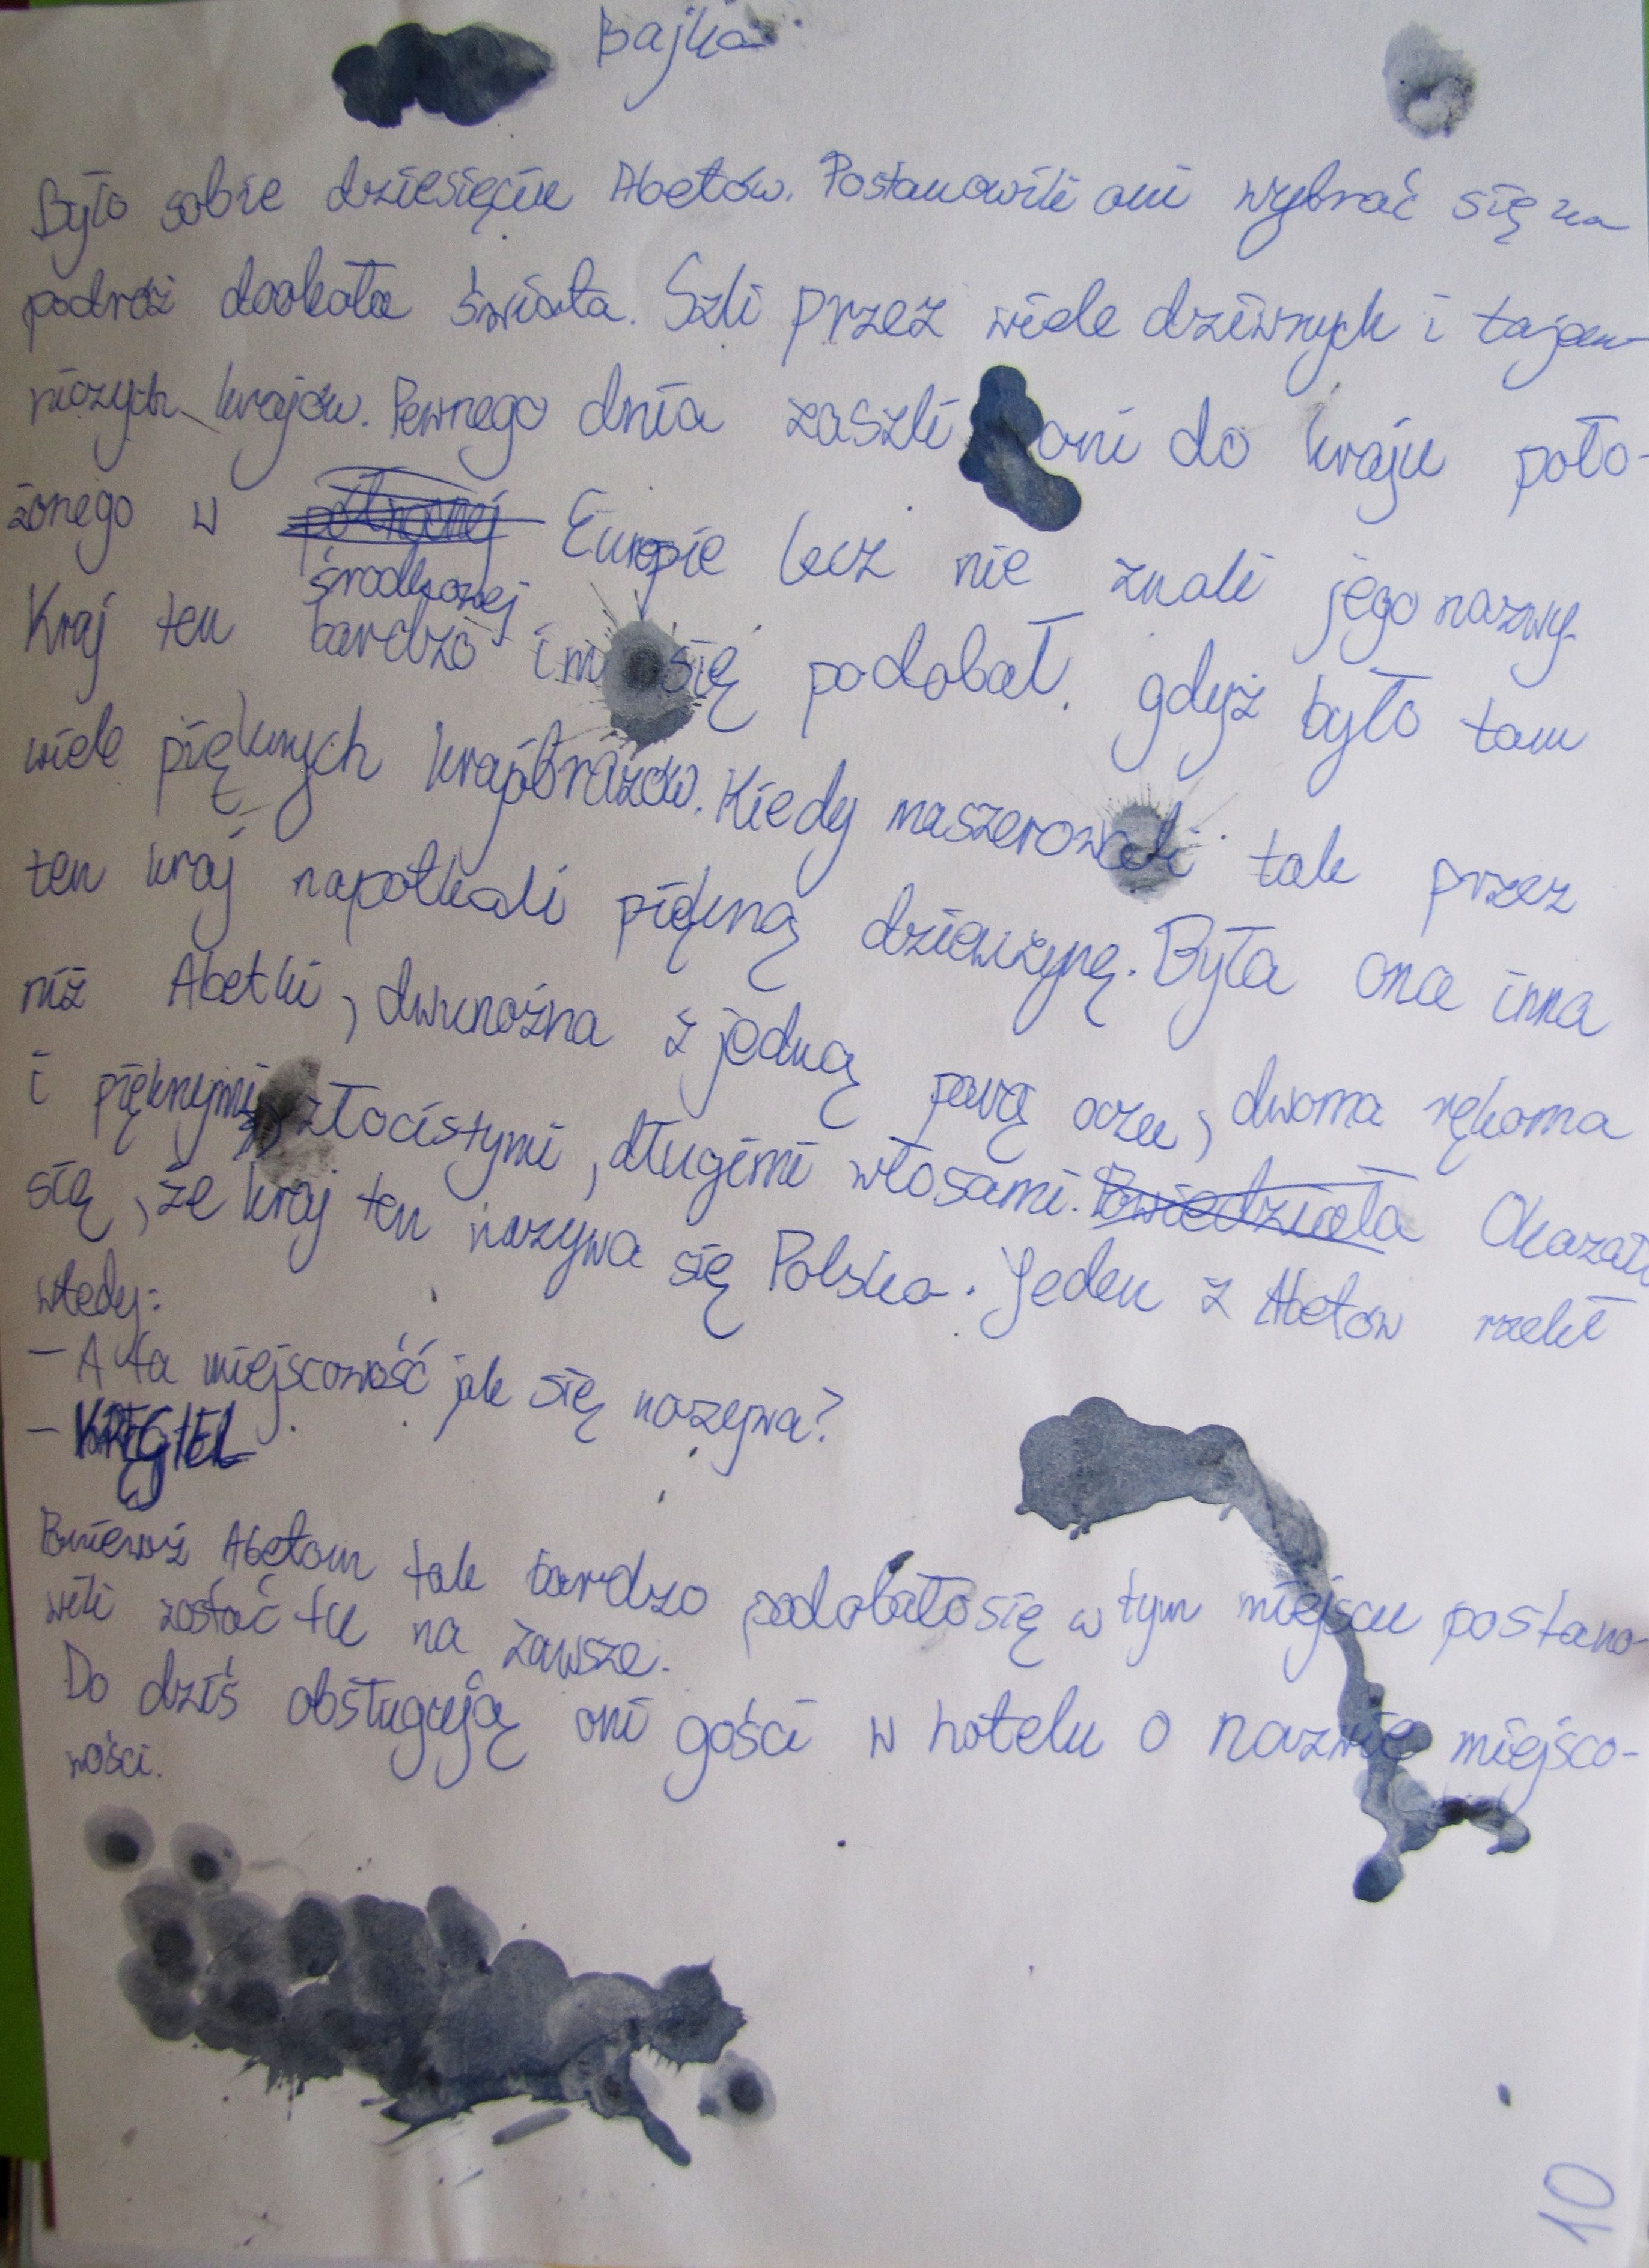 Bajka
Było sobie dziesięciu Abetów. Postanowili oni wybrać się na
podróż dookoła świata. Szli przez wiele dziwnych i tajem-
niczych krajów. Pewnego dnia zaszli oni do kraju poło-
żonego w środkowej Europie lecz nie znali jego nazwy.
Kraj ten bardzo im się podobał, gdyż było tam
wiele pięknych krajobrazów. Kiedy maszerowali tak przez
ten kraj napotkali piękną dziewczynę. Była ona inna
niż Abetki, dwunożna z jedną parą oczu, dwoma rękoma
i pięknymi złocistymi, długimi włosami. Powiedziała Okazało
się, że kraj ten nazywa się Polska. Jeden z Abetów rzekł
wtedy:
- A ta miejscowość jak się nazywa?
- KRĘGIEL
Ponieważ Abetom tak bardzo podobało się w tym miejscu postano-
wili zostać tu na zawsze.
Do dziś obsługują oni gości w hotelu o nazwie miejsco-
wości.
10